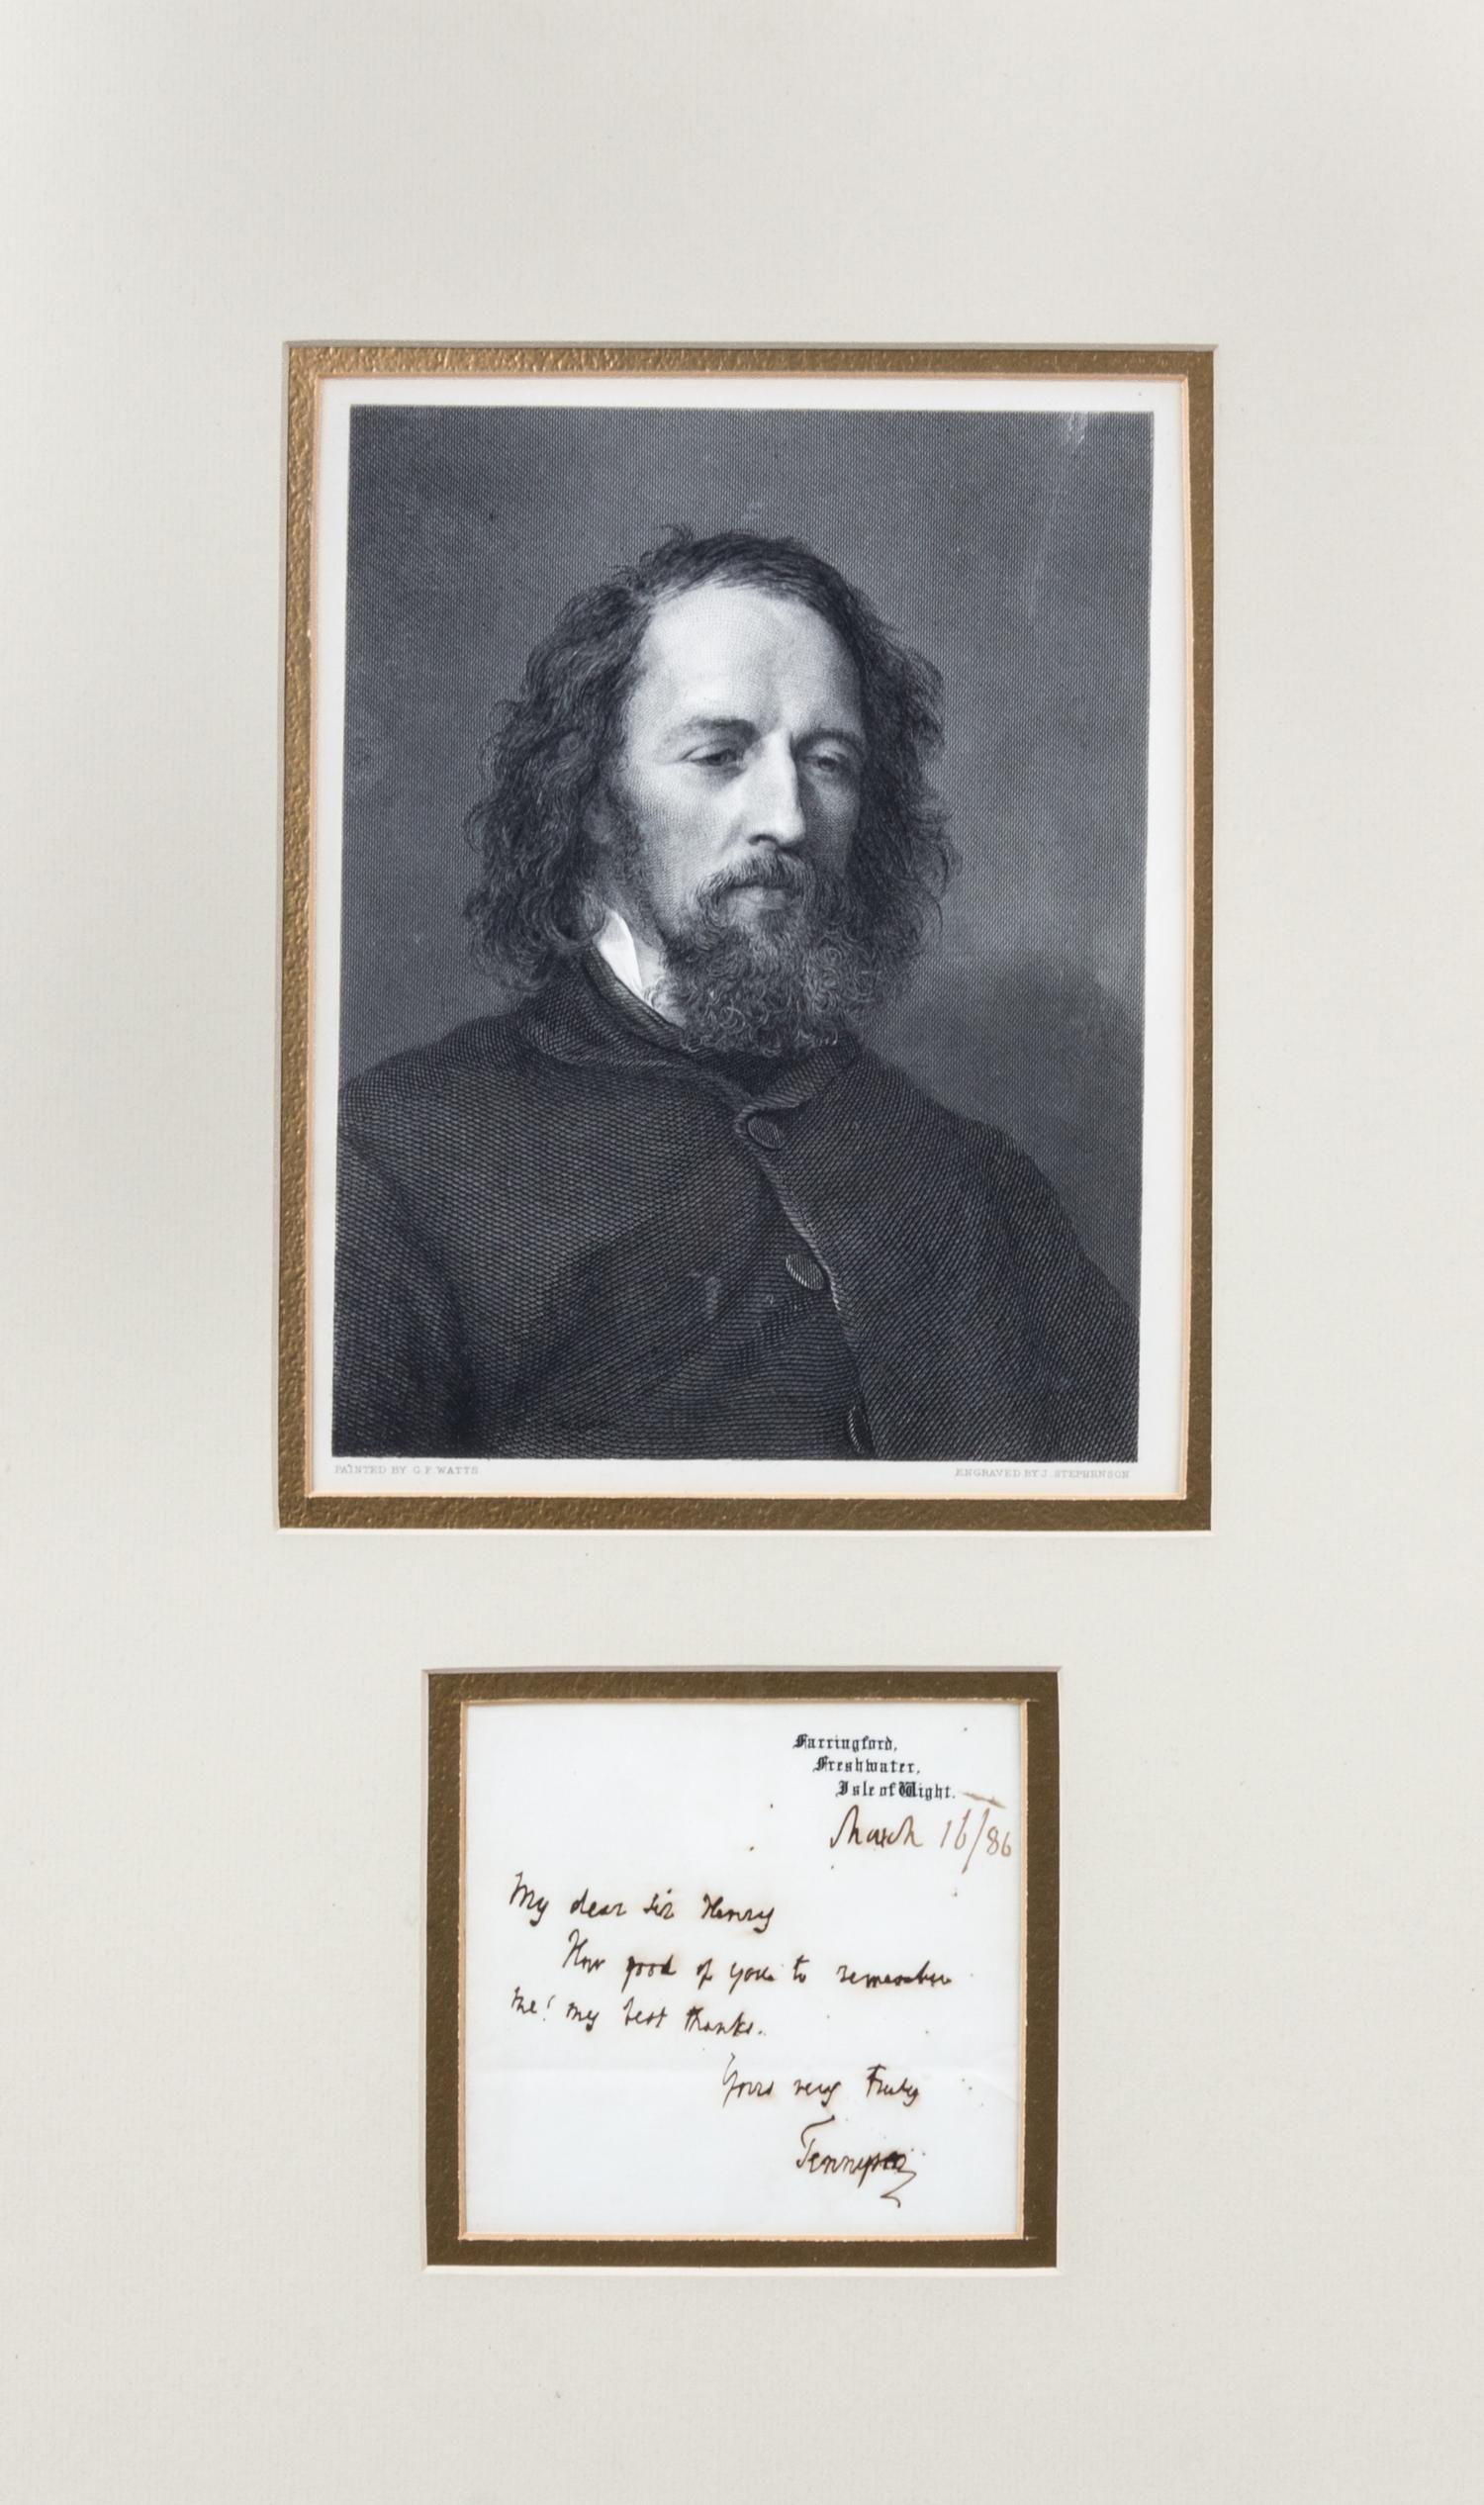 PAINTED BY G F WATTS.
ENGRAVED BY J. STEPHENSON
Farringford,
Freshwater,
Isle of Wight.
March 16/86
My dear Sir Henry
How good of you to remember
me! my best thanks.
Yours very truly
Tennyson